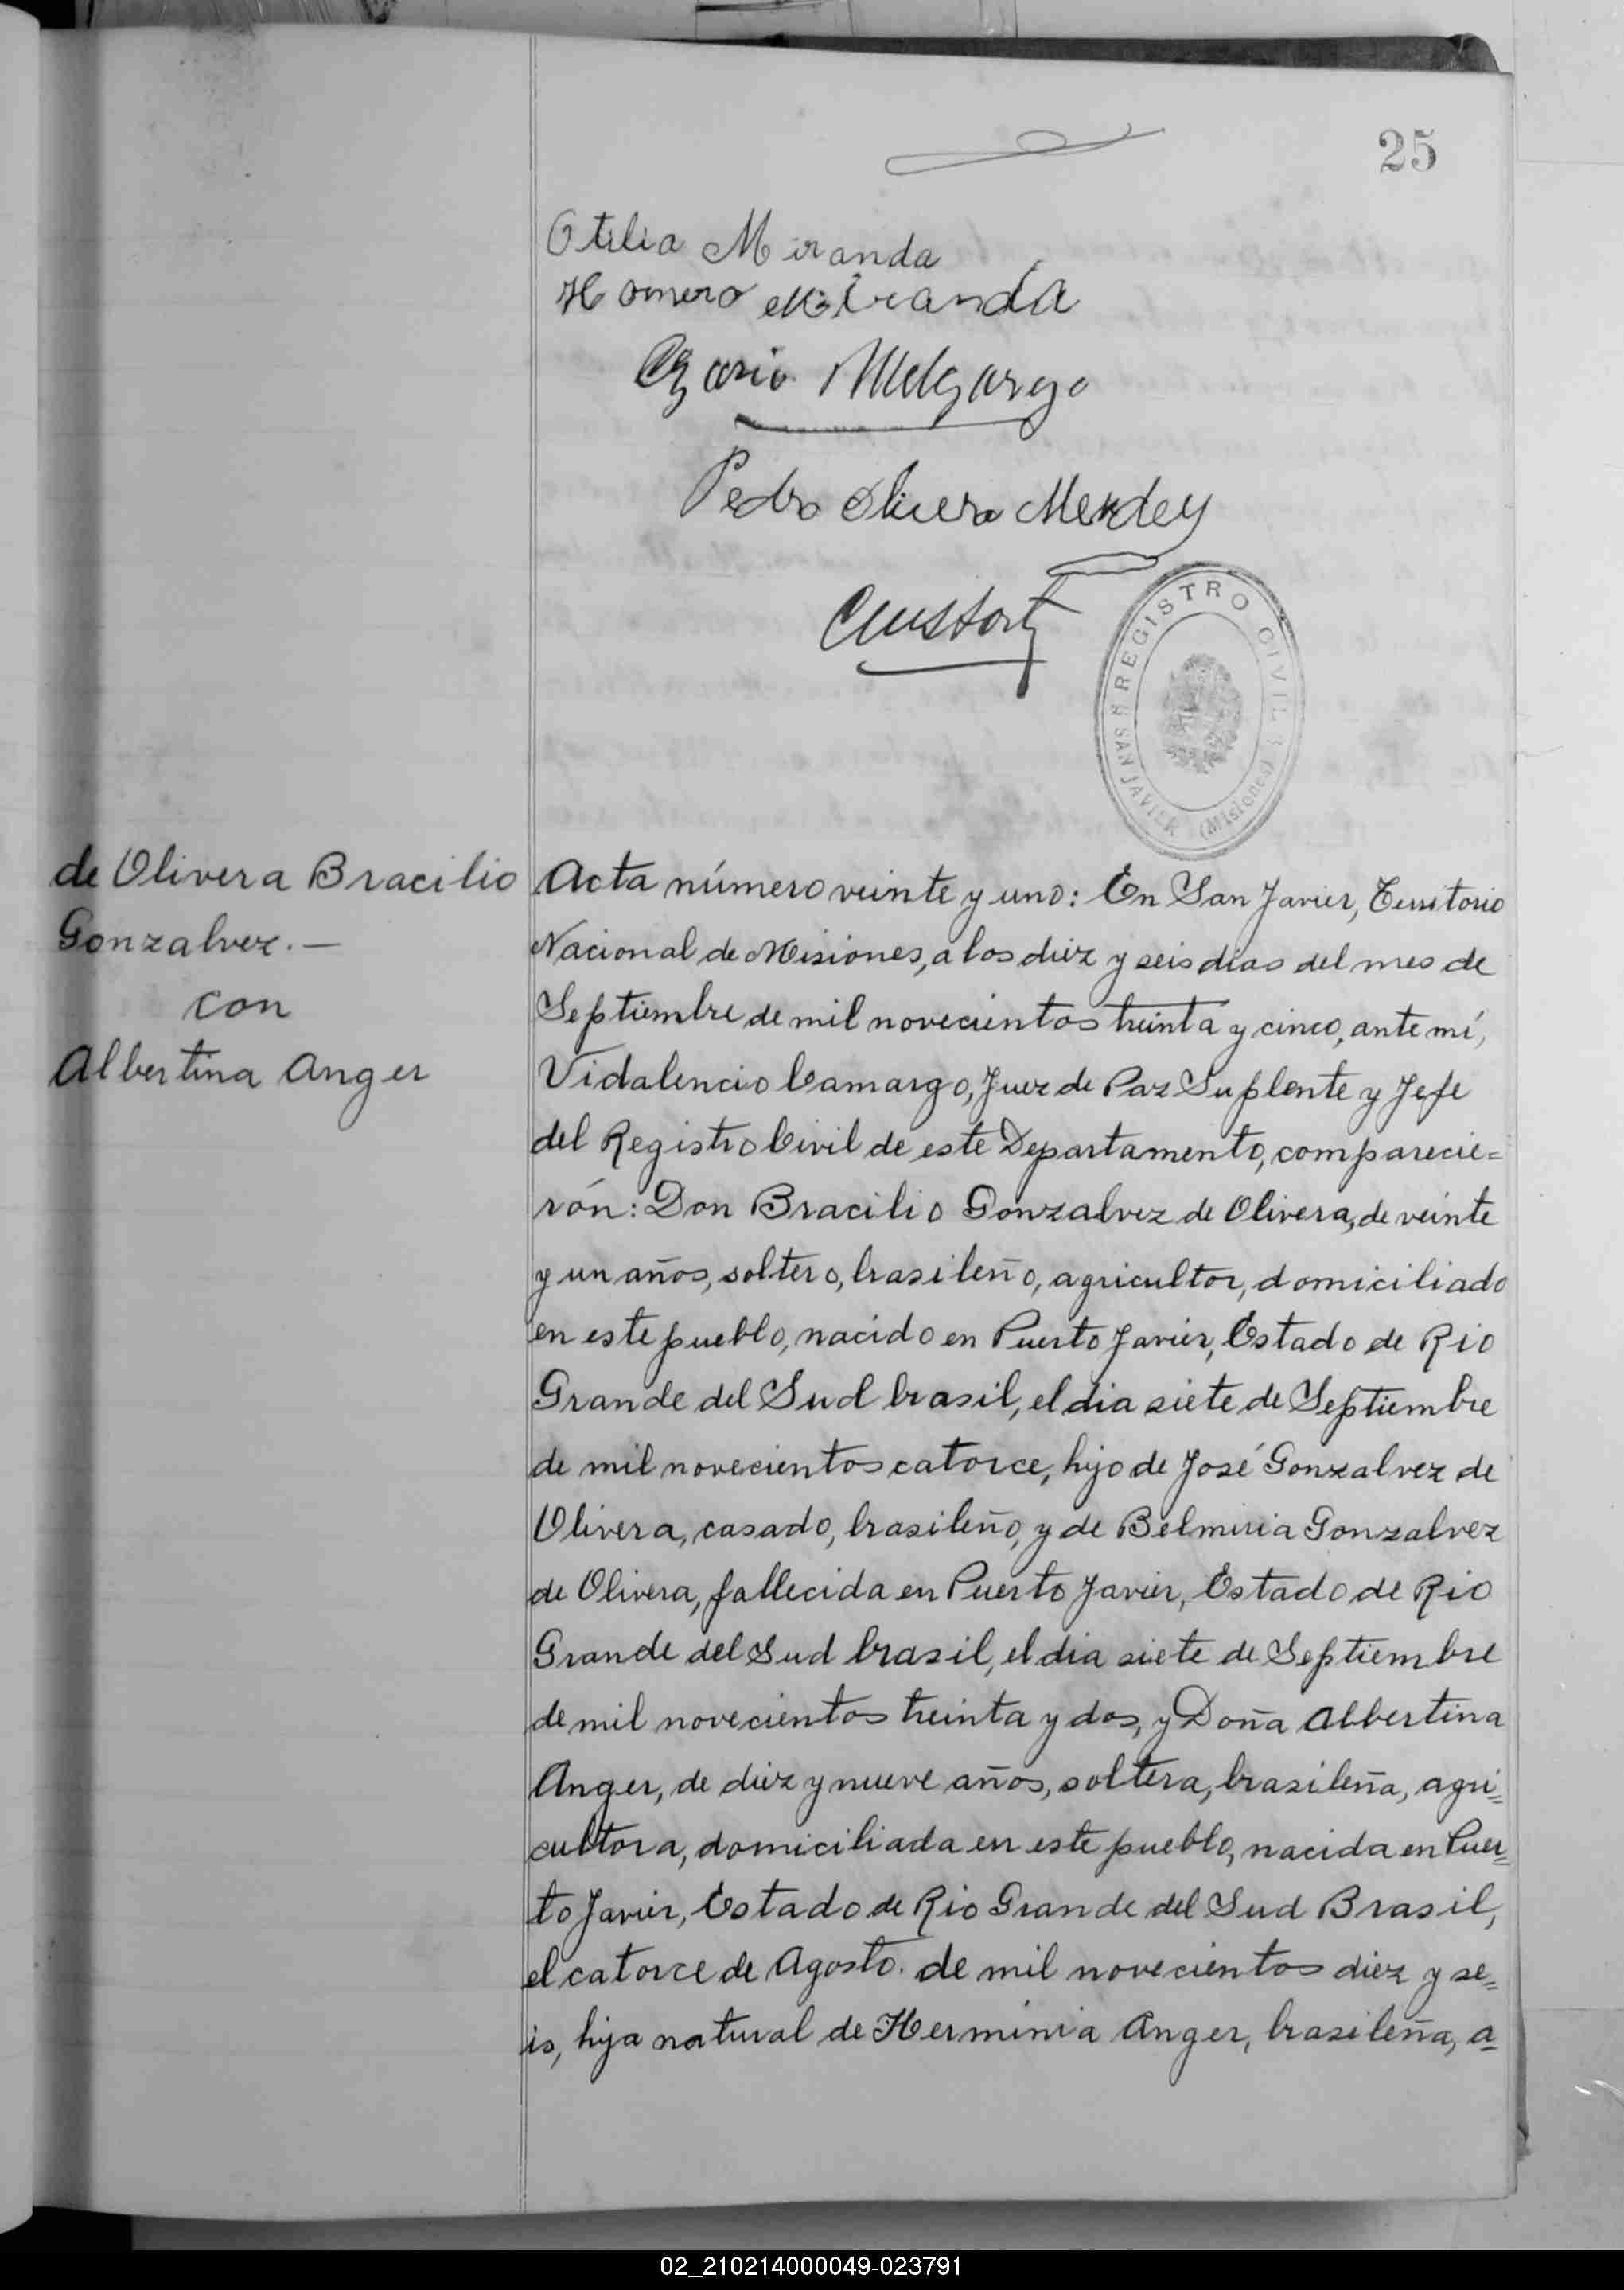 25
Otilia Miranda
Homero Miranda
Melgarejo
Pedro Olivera Mendez
REGISTRO CIVIL
SAN JAVIER (Misiones)
de Olivera Bracilio
Gonzalvez.—
con
Albertina Anger
Acta número veinte y uno: En San Javier, Territorio
Nacional de Misiones, a los diez y seis dias del mes de
Septiembre de mil novecientos treinta y cinco, ante mí,
Vidalencio Camargo, Juez de Paz Suplente y Jefe
del Registro Civil de este Departamento, comparecie=
rón: Don Bracilio Gonzalvez de Olivera, de veinte
y un años, soltero, brasileño, agricultor, domiciliado
en este pueblo, nacido en Puerto Javier, Estado de Rio
Grande del Sud brasil, el dia siete de Septiembre
de mil novecientos catorce, hijo de José Gonzalvez de
Olivera, casado, brasileño, y de Belmiria Gonzalvez
de Olivera, fallecida en Puerto Javier, Estado de Rio
Grande del Sud brasil, el dia siete de Septiembre
de mil novecientos treinta y dos, y Doña Albertina
Anger, de diez y nueve años, soltera, brasileña, agri=
cultora, domiciliada en este pueblo, nacida en Puer=
to Javier, Estado de Rio Grande del Sud Brasil,
el catorce de Agosto. de mil novecientos diez y se=
is, hija natural de Herminia Anger, brasileña, a=
02_210214000049-023791